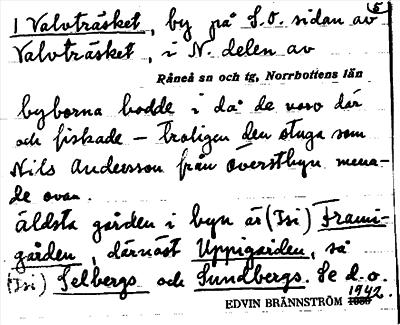 5
1 Valvträsket, by på S.O. sidan av
Valvträsket, i N. delen av
Råneå sn och tg, Norrbottens län
byborna bodde i då de voro där
och fiskade – troligen den stuga som
Nils Andersson från Överstbyn mena-
de ovan.
äldsta gården i byn är (Isi) Frami-
gården, därnäst Uppigården, så
(Isi) Selbergs och Sundbergs. Se d.o.
1942.
EDVIN BRÄNNSTRÖM